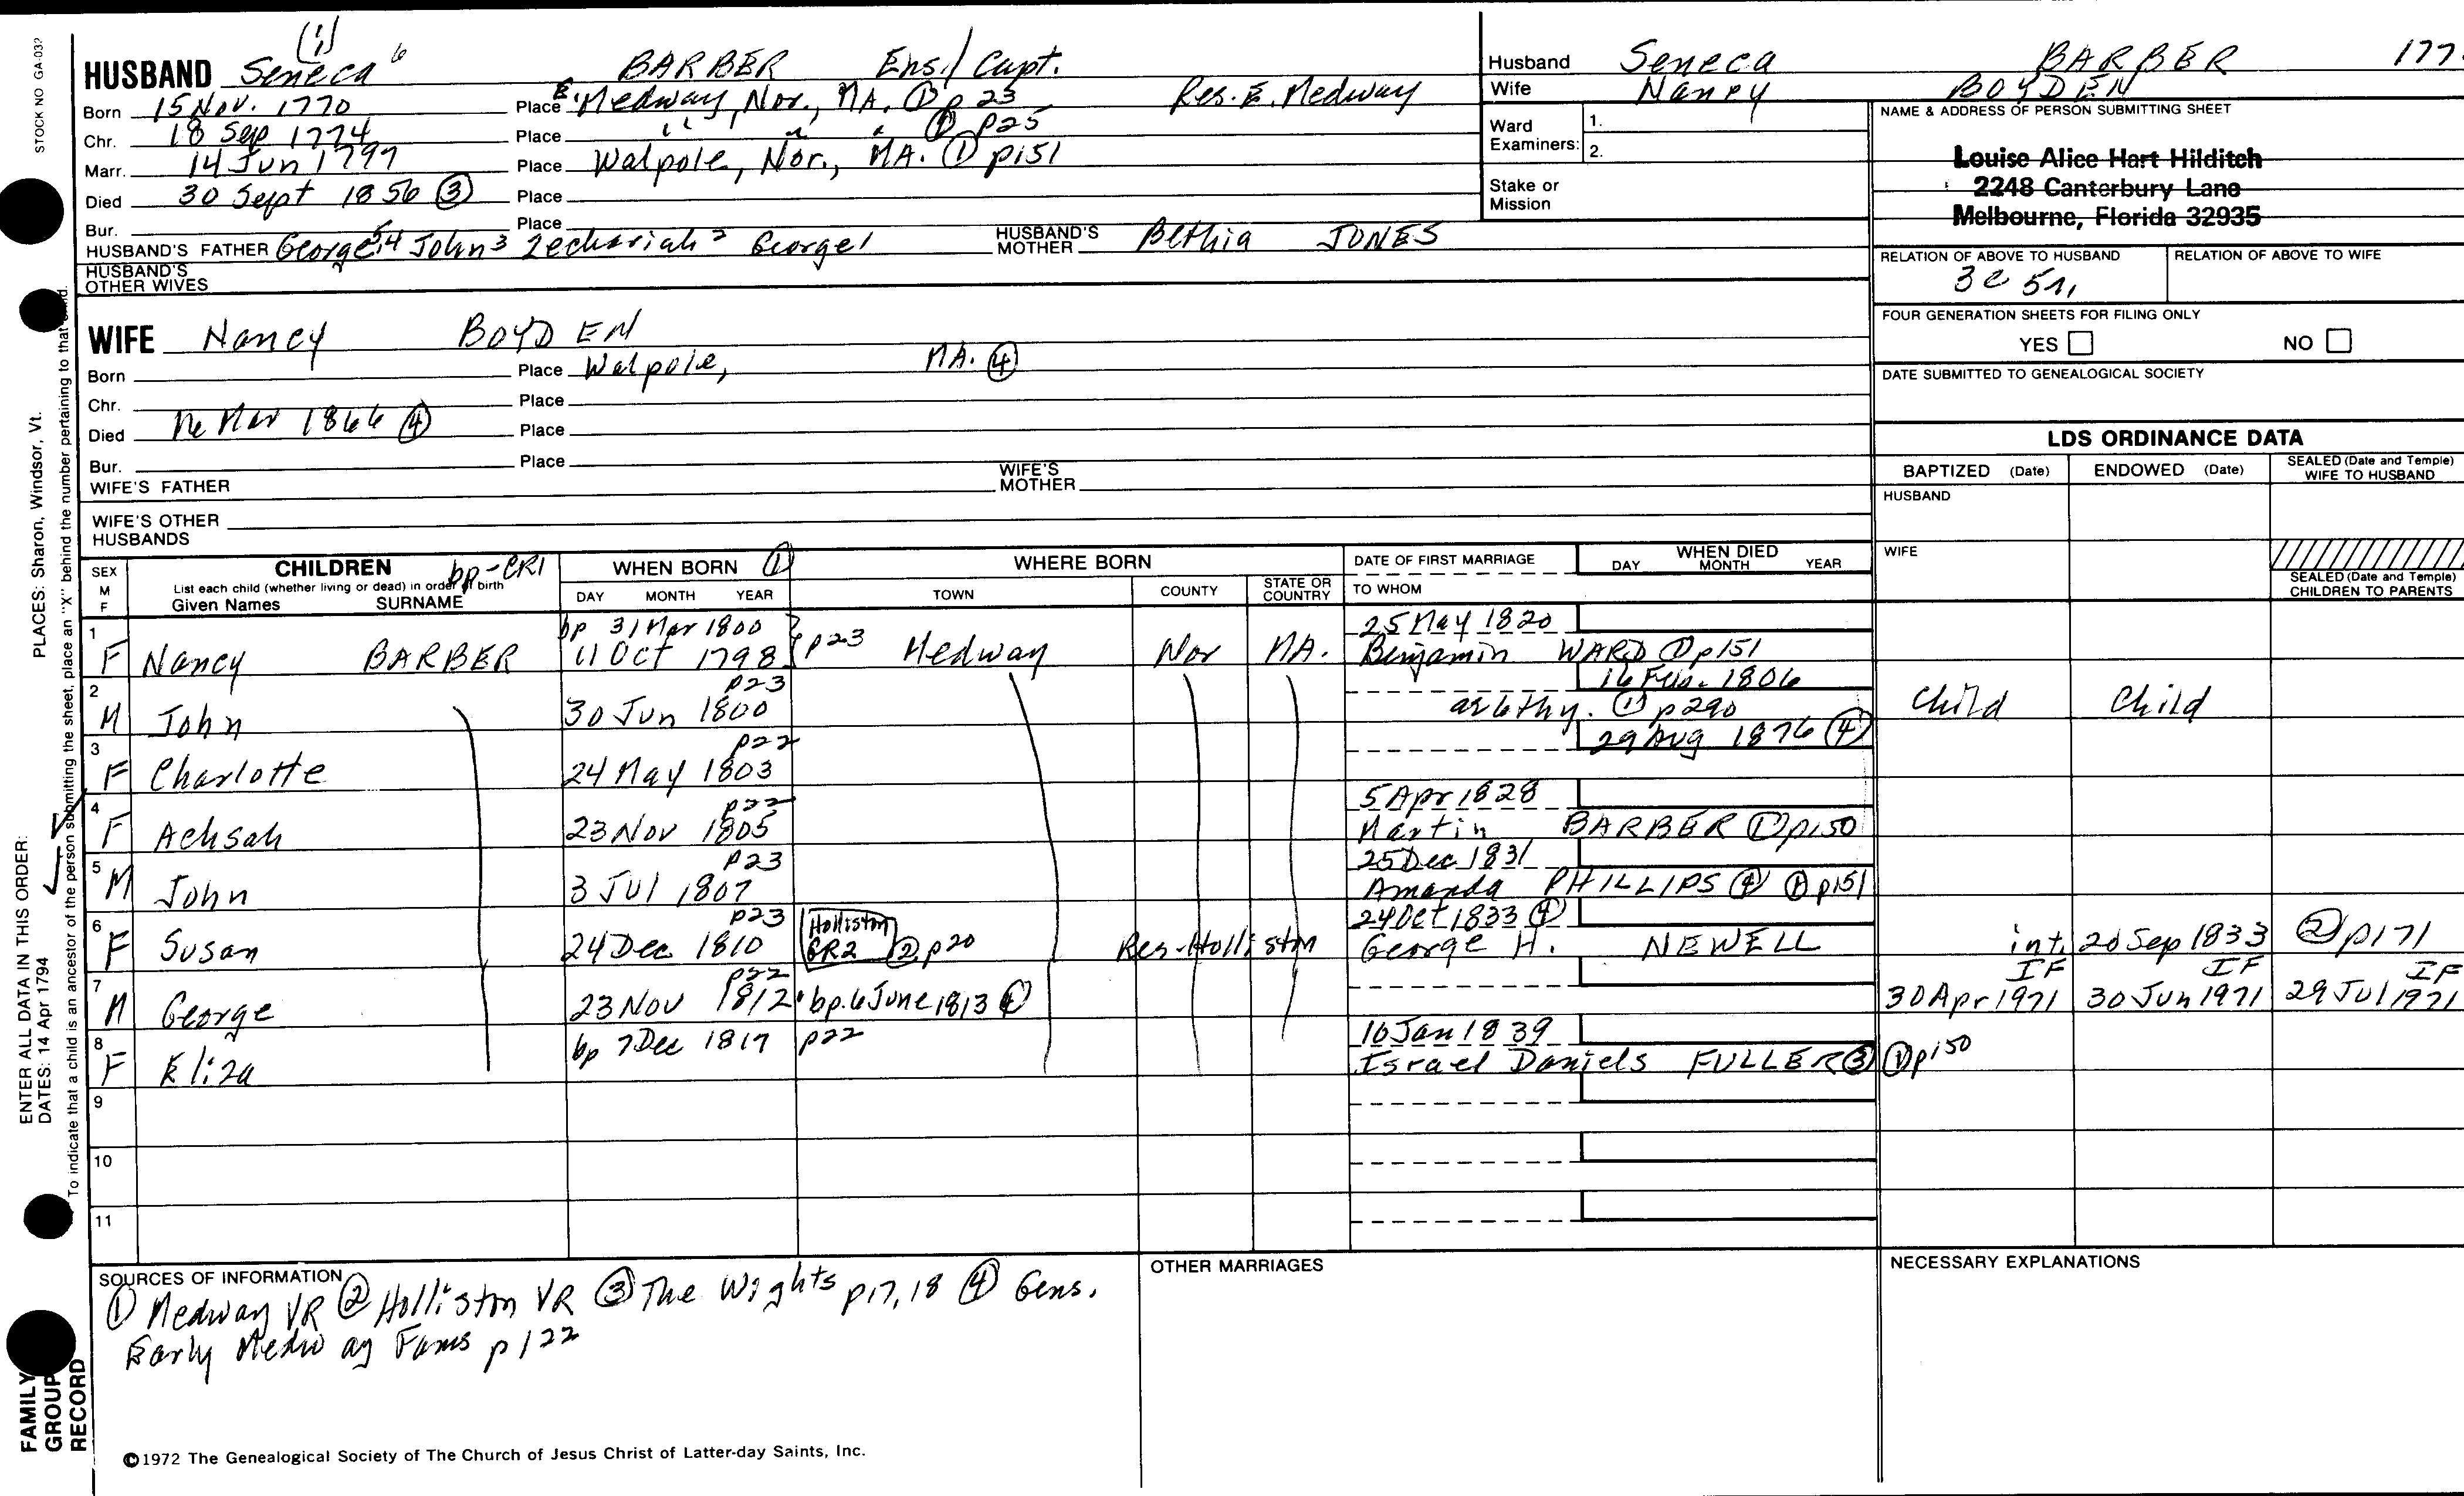 STOCK NO GA-032
(1)
HUSBAND Seneca 6 BARBER Ens./Capt.
Born 15 Nov. 1770 Place E. Medway, Nor., MA. ① p 23 Res. E. Medway
Chr. 18 Sep 1774 Place " " " ① p25
Marr. 14 Jun 1797 Place Walpole, Nor., MA. ① p151
Died 30 Sept 1856 ③ Place
Bur. Place
HUSBAND'S FATHER George 54 John 3 Zechariah 2 George 1 HUSBAND'S MOTHER Bethia JONES
HUSBAND'S
OTHER WIVES
WIFE Nancy BOYDEN
Born Place Walpole, MA. ④
Chr. Place
Died Mar 1866 ④ Place
Bur. Place
WIFE'S FATHER WIFE'S MOTHER
WIFE'S OTHER
HUSBANDS
Husband Seneca BARBER 177
Wife Nancy BOYDEN
Ward
Examiners: 1.
2.
Stake or
Mission
NAME & ADDRESS OF PERSON SUBMITTING SHEET
Louise Alice Hart Hilditch
2248 Canterbury Lane
Melbourne, Florida 32935
RELATION OF ABOVE TO HUSBAND RELATION OF ABOVE TO WIFE
3c 5r,
FOUR GENERATION SHEETS FOR FILING ONLY
YES NO
DATE SUBMITTED TO GENEALOGICAL SOCIETY
LDS ORDINANCE DATA
BAPTIZED (Date) ENDOWED (Date) SEALED (Date and Temple) WIFE TO HUSBAND
HUSBAND
WIFE
SEALED (Date and Temple)
CHILDREN TO PARENTS
SEX
M
F
CHILDREN bp-CR1
List each child (whether living or dead) in order of birth
Given Names SURNAME
WHEN BORN ①
DAY MONTH YEAR
WHERE BORN
TOWN COUNTY STATE OR COUNTRY
DATE OF FIRST MARRIAGE
TO WHOM
WHEN DIED
DAY MONTH YEAR
1 bp 31 Mar 1800 25 May 1820
F Nancy BARBER 11 Oct 1798 p23 Medway Nor MA. Benjamin WARD ① p151
2 p23 16 Feb. 1806
M John 30 Jun 1800 ae 6 thy. ① p290 Child Child
3 p22 29 Aug 1876 ④
F Charlotte 24 May 1803
4 p22 5 Apr 1828
F Achsah 23 Nov 1805 Martin BARBER ① p150
5 p23 25 Dec 1831
M John 3 Jul 1807 Amanda PHILLIPS ④ ① p151
6 p23 Holliston 24 Oct 1833 ④
F Susan 24 Dec 1810 GR2 ② p20 Res-Holliston George H. NEWELL int. 20 Sep 1833 ② p171
7 p22 IF IF IF
M George 23 Nov 1812 bp. 6 June 1813 ④ 30 Apr 1971 30 Jun 1971 29 Jul 1971
8 16 Jan 1839
F Eliza bp 7 Dec 1817 p22 Israel Daniels FULLER ③ ① p150
9
10
11
SOURCES OF INFORMATION
① Medway VR ② Holliston VR ③ The Wights p17, 18 ④ Gens.
Early Medway Fams p 122
OTHER MARRIAGES
NECESSARY EXPLANATIONS
©1972 The Genealogical Society of The Church of Jesus Christ of Latter-day Saints, Inc.
ENTER ALL DATA IN THIS ORDER: PLACES: Sharon, Windsor, Vt.
DATES: 14 Apr 1794
To indicate that a child is an ancestor of the person submitting the sheet, place an "X" behind the number pertaining to that child.
FAMILY
GROUP
RECORD